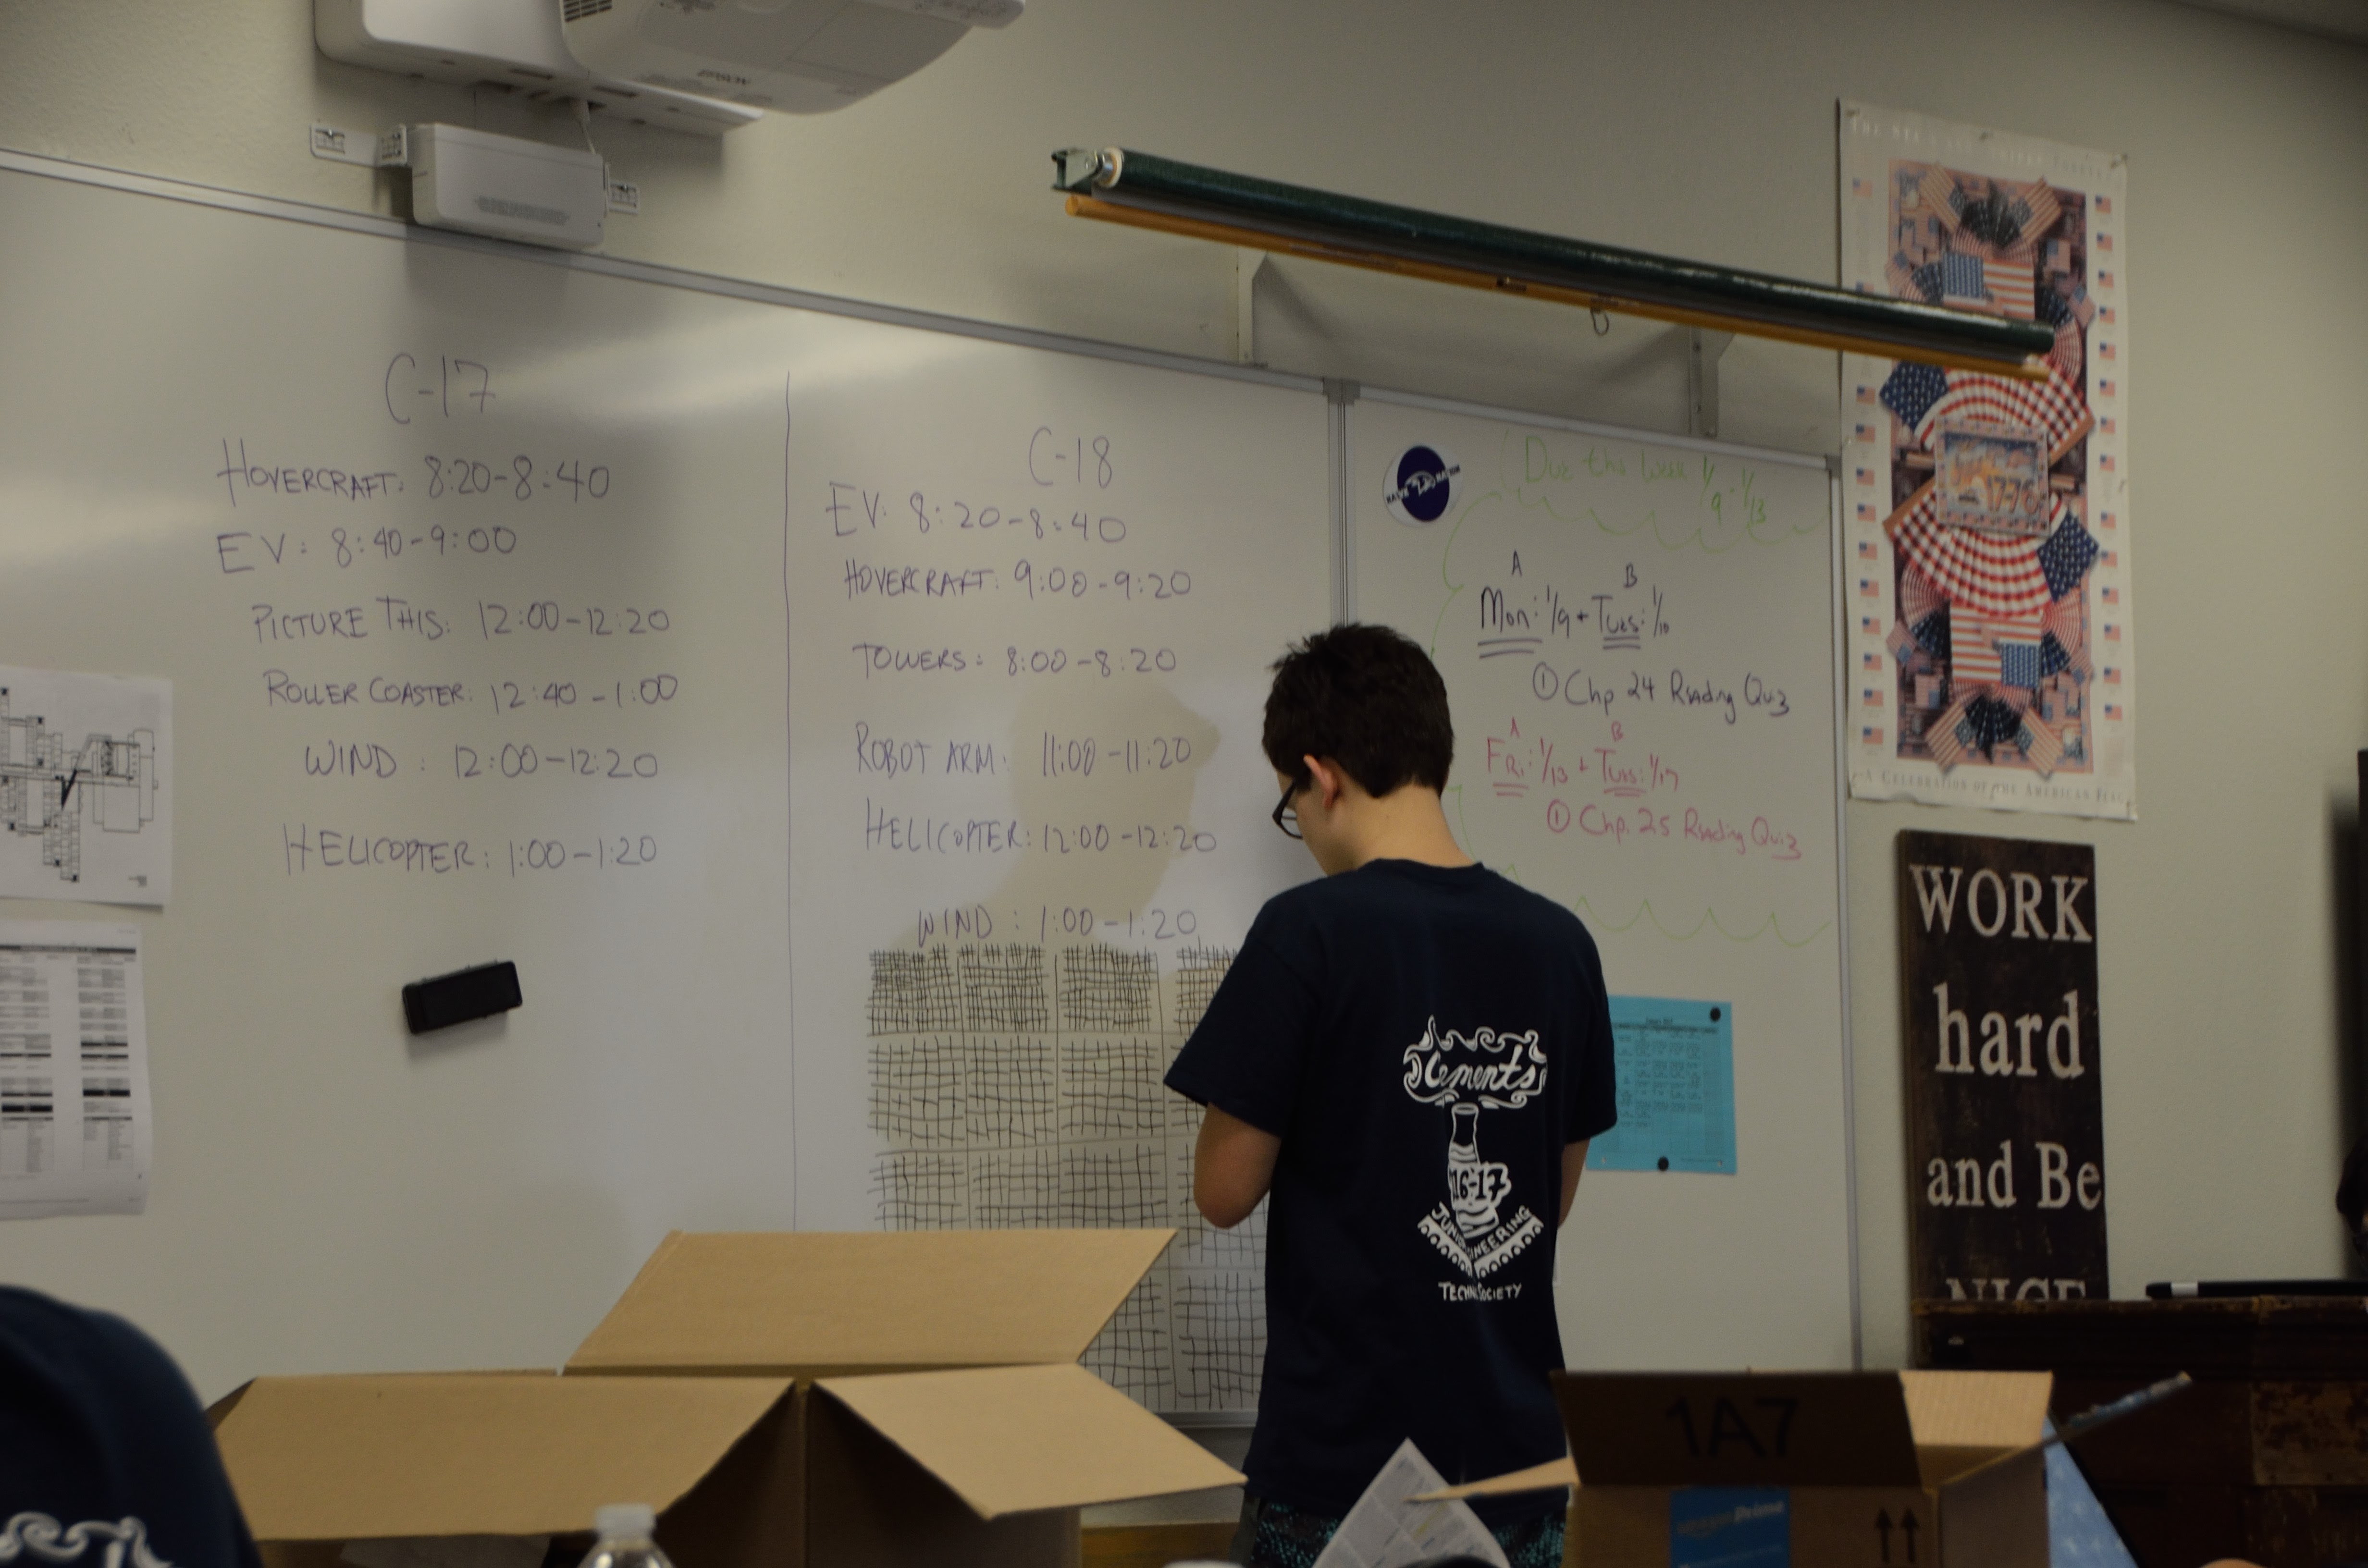 EPSON
C-17
HOVERCRAFT: 8:20-8:40
EV: 8:40-9:00
PICTURE THIS: 12:00-12:20
ROLLER COASTER: 12:40-1:00
WIND: 12:00-12:20
HELICOPTER: 1:00-1:20
C-18
EV: 8:20-8:40
HOVERCRAFT: 9:00-9:20
TOWERS: 8:00-8:20
ROBOT ARM: 11:00-11:20
HELICOPTER: 12:00-12:20
WIND: 1:00-1:20
Due this Week 1/9-1/13
A B
Mon: 1/9 + Tues: 1/10
① Chp 24 Reading Quiz
A B
Fri: 1/13 + Tues: 1/17
① Chp. 25 Reading Quiz
1776
A CELEBRATION OF THE AMERICAN FLAG
WORK
hard
and Be
NICE
Clements
16-17
JUNIOR ENGINEERING
TECHN SOCIETY
1A7